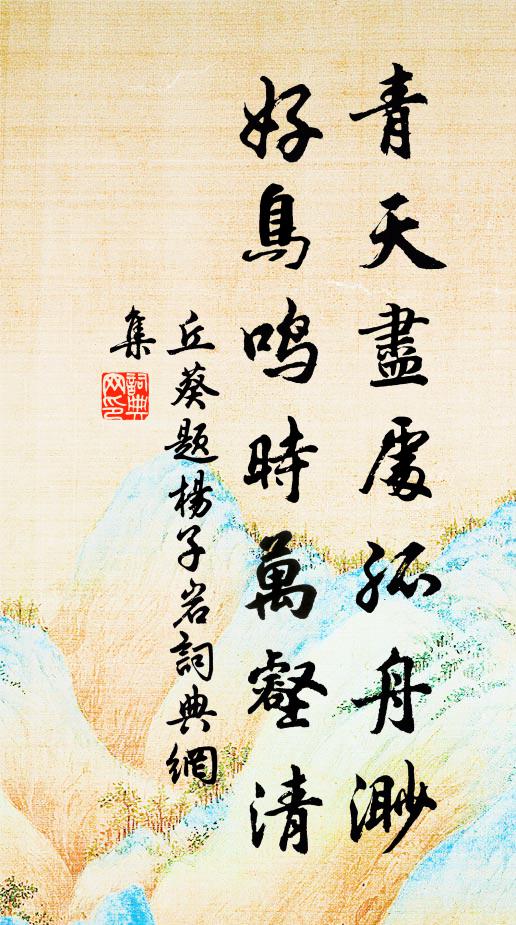 青天盡處孤舟渺
好鳥鳴時萬壑清
丘葵題楊子岩詞典網
集
詞典
网印